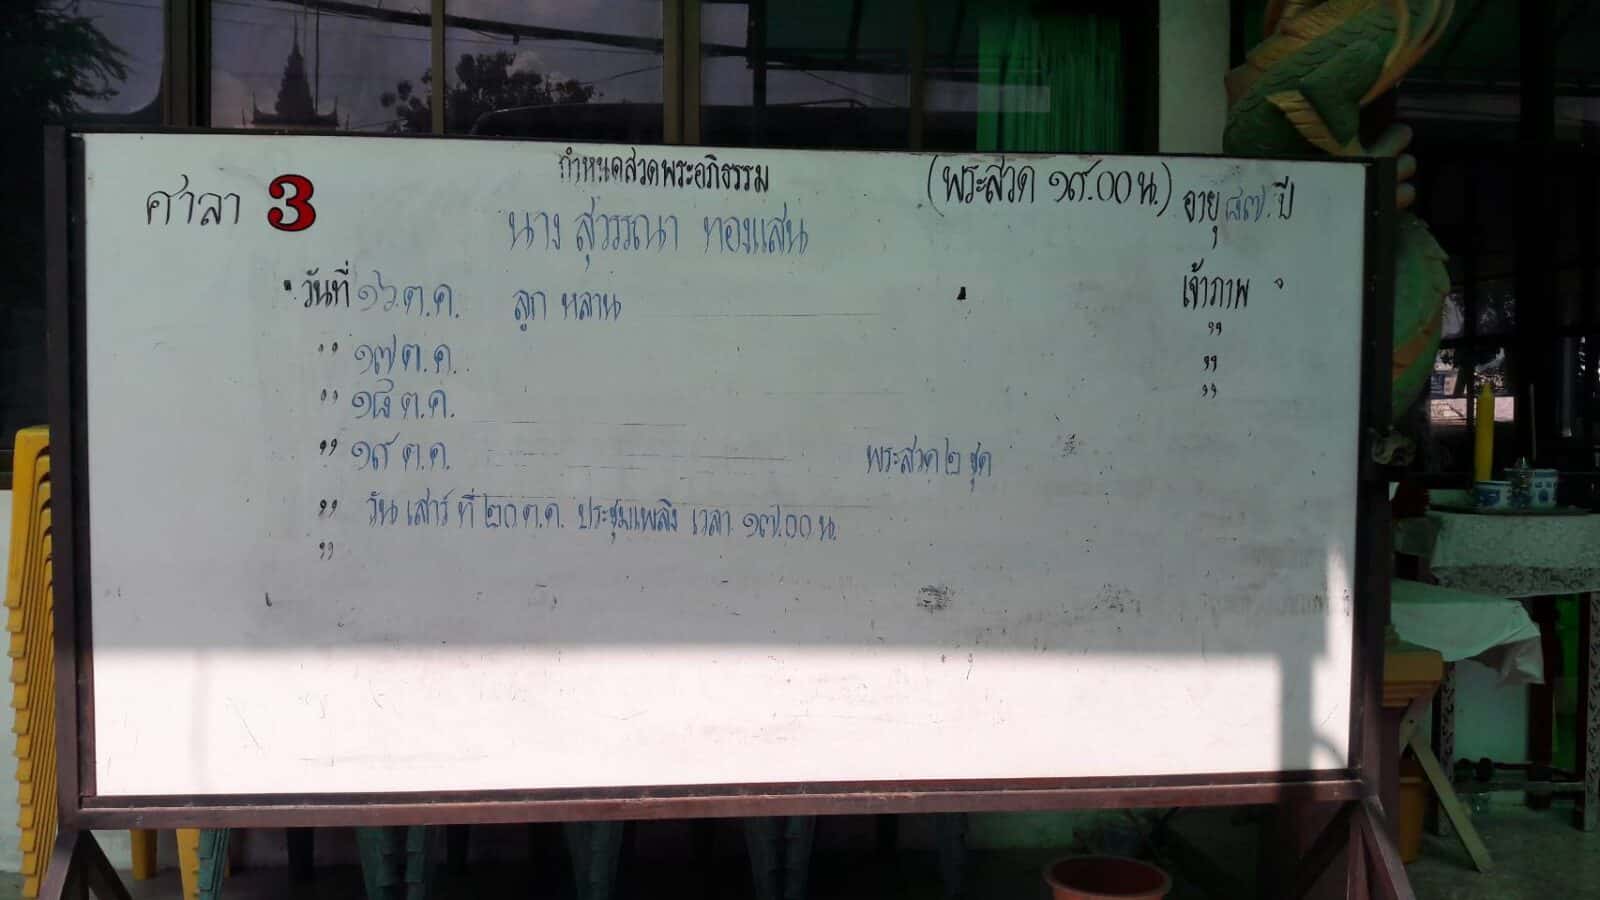 ศาลา 3
กำหนดสวดพระอภิธรรม (พระสวด ๑๙.๐๐ น.) อายุ ๘๗ ปี
นาง สุวรรณา ทองแสน
วันที่ ๑๖ ต.ค. ลูก หลาน เจ้าภาพ
" ๑๗ ต.ค. "
" ๑๘ ต.ค. "
" ๑๙ ต.ค. พระสวด ๒ ชุด "
" วัน เสาร์ ที่ ๒๐ ต.ค. ประชุมเพลิง เวลา ๑๗.๐๐ น.
"